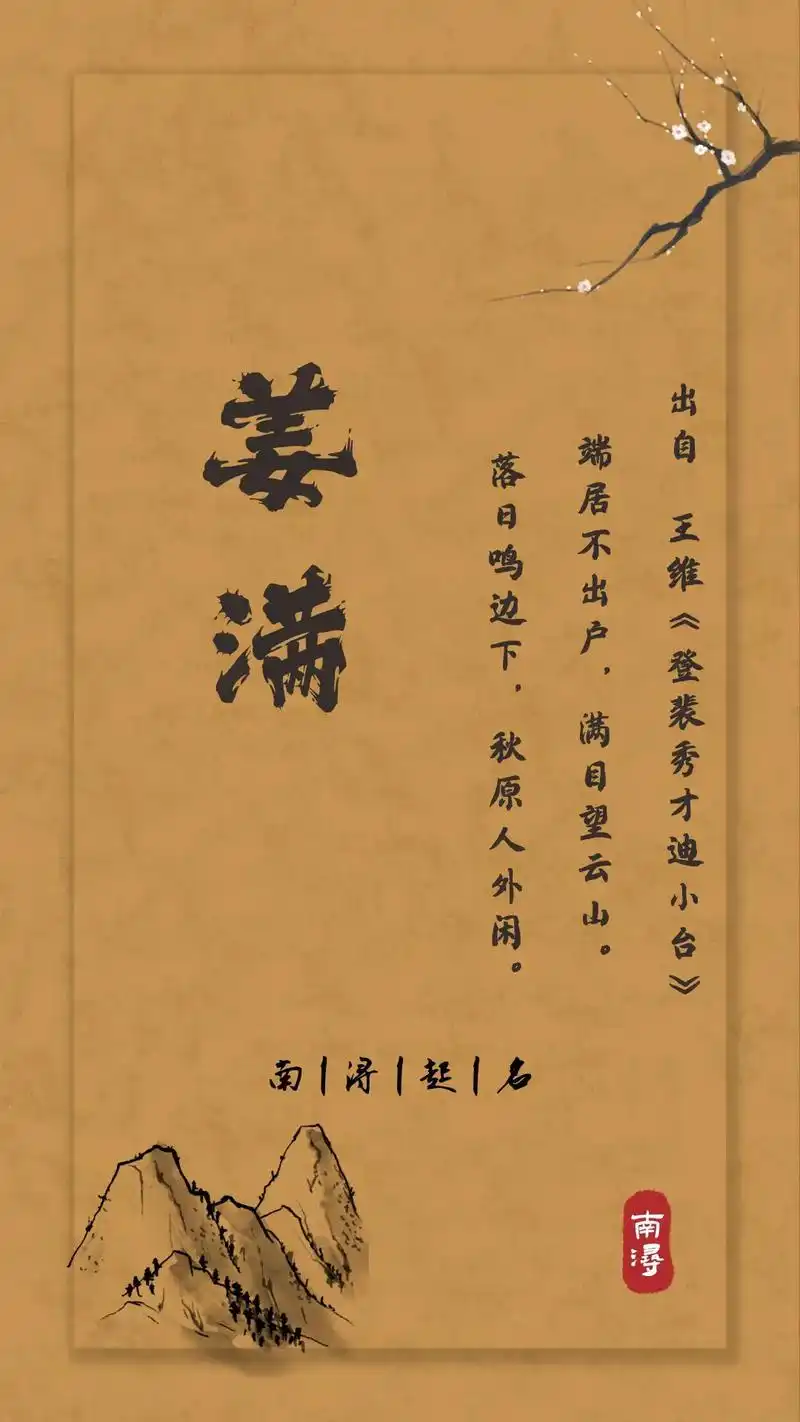 出自 王维《登裴秀才迪小台》
端居不出户，满目望云山。
落日鸣边下，秋原人外闲。
姜满
南|浔|起|名
南浔